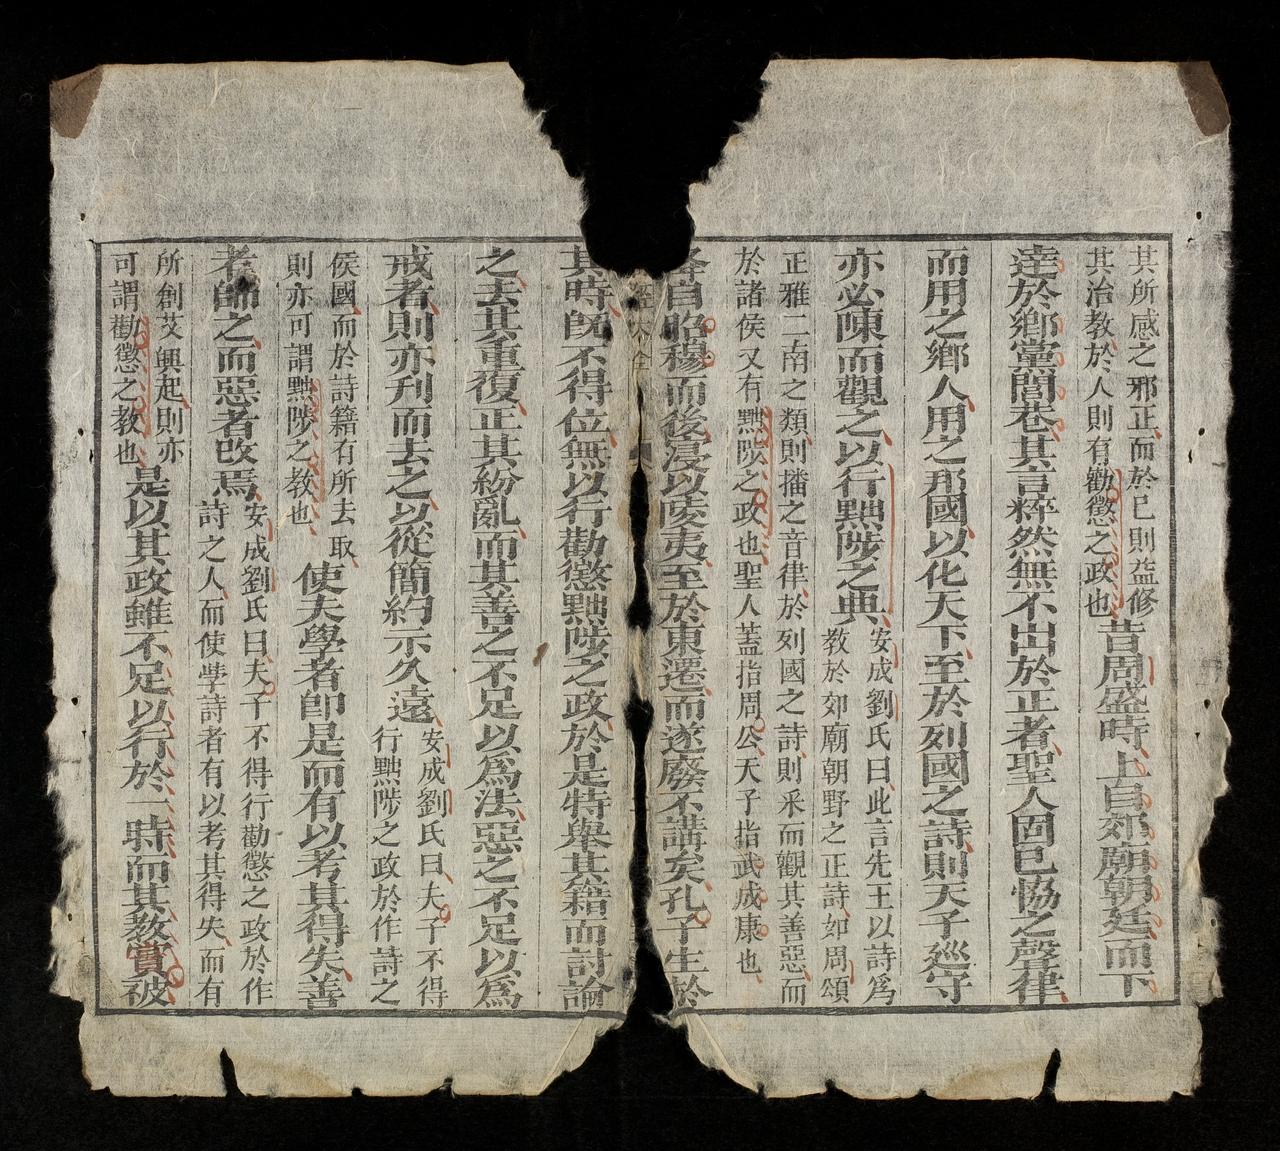 其所感之邪正而於已則益修
其治教於人則有勸懲之政也
昔周盛時上自郊廟朝廷而下
達於鄉黨閭巷其言粹然無不出於正者聖人固已協之聲律
而用之鄉人用之邦國以化天下至於列國之詩則天子巡守
亦必陳而觀之以行黜陟之典
安成劉氏曰此言先王以詩爲
教於郊廟朝野之正詩如周頌
正雅二南之類則播之音律於列國之詩則采而觀其善惡而
於諸侯又有黜陟之政也聖人蓋指周公天子指武成康也
降自昭穆而後寖以陵夷至於東遷而遂廢不講矣孔子生於
其時既不得位無以行勸懲黜陟之政於是特舉其籍而討論
之去其重復正其紛亂而其善之不足以爲法惡之不足以爲
戒者則亦刋而去之以從簡約示久遠
安成劉氏曰夫子不得
行黜陟之政於作詩之
侯國而於詩籍有所去取
則亦可謂黜陟之教也
使夫學者卽是而有以考其得失善
者師之而惡者改焉
安成劉氏曰夫子不得行勸懲之政於作
詩之人而使學詩者有以考其得失而有
所創艾興起則亦
可謂勸懲之教也
是以其政雖不足以行於一時而其教實被